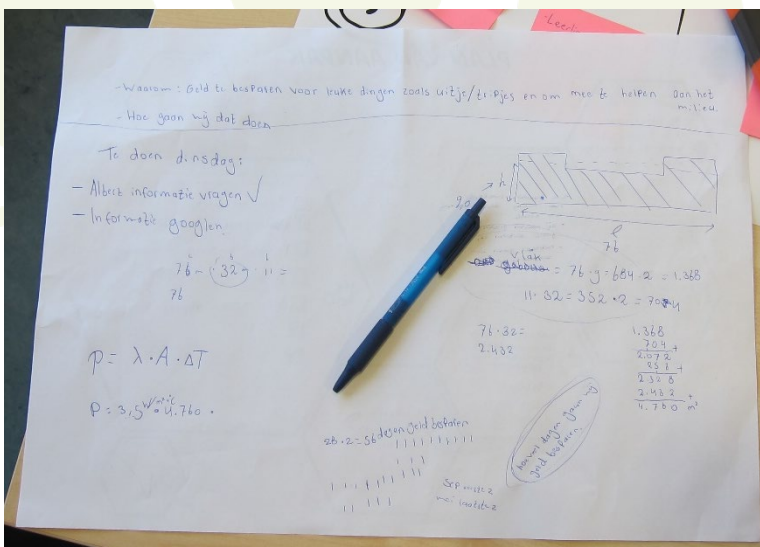 - Leerl
- Waarom : Geld te besparen voor leuke dingen zoals uitje/tripjes en om mee te helpen aan het
milieu.
- Hoe gaan wij dat doen
Te doen dinsdag:
- Albert informatie vragen √
- Informatie googlen.
76 - 32 - 11 =
76
P = λ · A · ΔT
P = 3,5 · 4.760 ·
h
l
76
vlak = 76 · 9 = 684 · 2 = 1.368
11 · 32 = 352 · 2 = 704
76 · 32 =
2.432
1.368
704 +
2.072
+
2.328
2.432 +
4.760 m²
28 · 2 = 56 dagen geld besparen
hoeveel dagen gaan wij
geld besparen